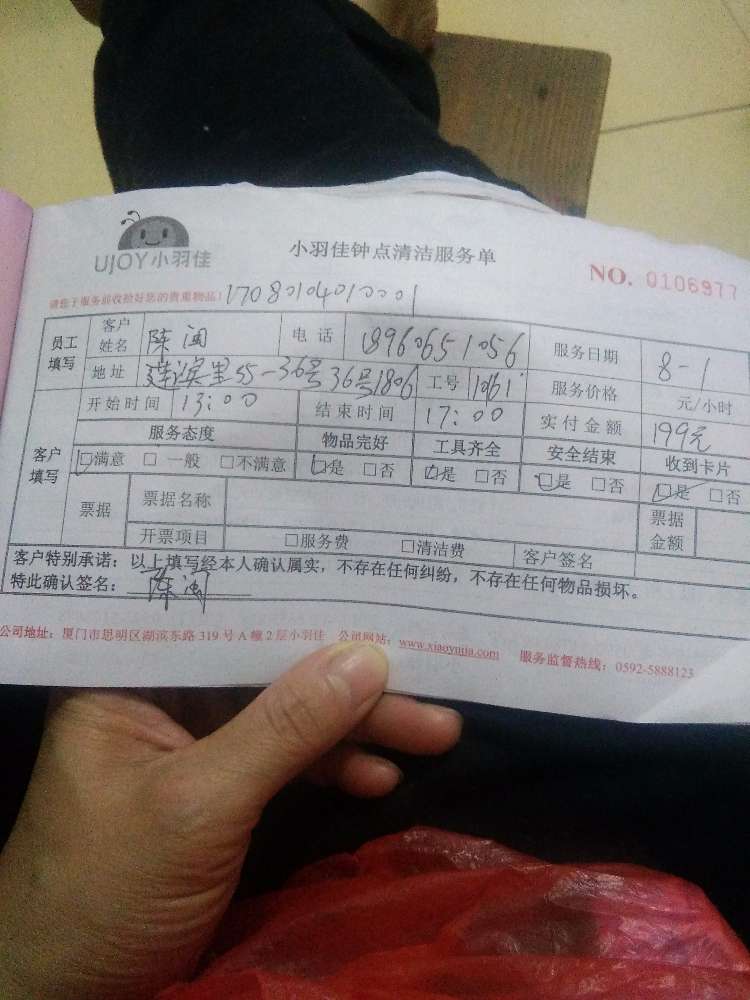 UJOY小羽佳
小羽佳钟点清洁服务单
NO. 0106977
请您于服务前收拾好您的贵重物品! 17080104010001
员工填写 客户姓名 陈闽 电话 18960651056 服务日期 8-1
地址 莲滨里55-36号36号1806 工号 1061 服务价格 元/小时
开始时间 13:00 结束时间 17:00 实付金额 199元
客户填写 服务态度 物品完好 工具齐全 安全结束 收到卡片
□满意 □一般 □不满意 □是 □否 □是 □否 □是 □否 □是 □否
票据 票据名称 票据金额
开票项目 □服务费 □清洁费 客户签名
客户特别承诺:以上填写经本人确认属实,不存在任何纠纷,不存在任何物品损坏。
特此确认签名: 陈闽
公司地址:厦门市思明区湖滨东路319号A幢2层小羽佳 公司网站:www.xiaoyujia.com 服务监督热线:0592-5888123